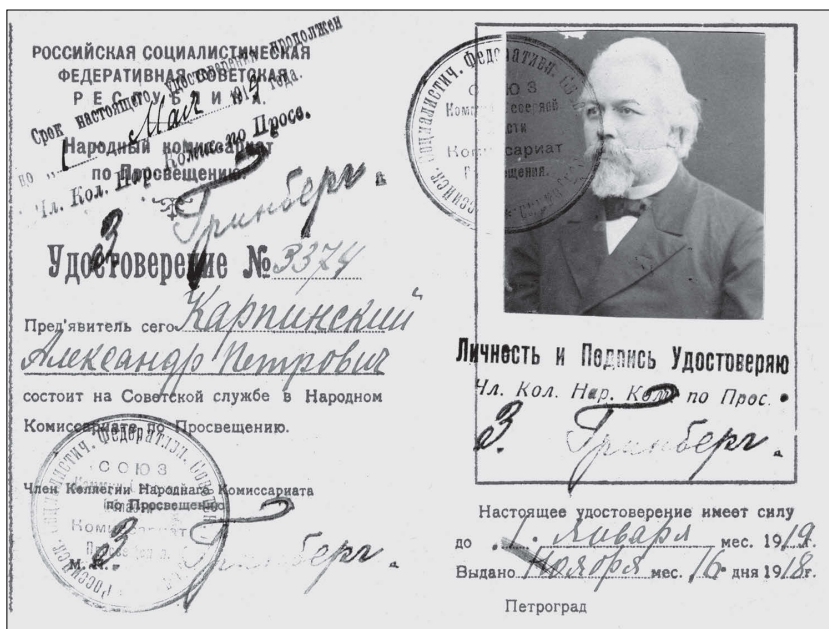 РОССИЙСКАЯ СОЦИАЛИСТИЧЕСКАЯ
ФЕДЕРАТИВНАЯ СОВЕТСКАЯ
РЕСПУБЛИКА.
Срок настоящего удостоверения продолжен
по "1" Мая 1919 года.
Чл. Кол. Нар. Комис. по Просв.
Народный комиссариат
по Просвещению.
З. Гринберг.
Удостоверение № 3374
Пред'явитель сего Карпинский
Александр Петрович
состоит на Советской службе в Народном
Комиссариате по Просвещению.
Член Коллегии Народнаго Комиссариата
по Просвещению
З. Гринберг.
М. П.
Российск. Социалистич. Федератвл. Сов
СОЮЗ
Комиссариат
Личность и Подпись Удостоверяю
Чл. Кол. Нар. Ком. по Прос.
З. Гринберг.
Настоящее удостоверение имеет силу
до 1. Января мес. 1919г.
Выдано Ноября мес. 16 дня 1918г.
Петроград